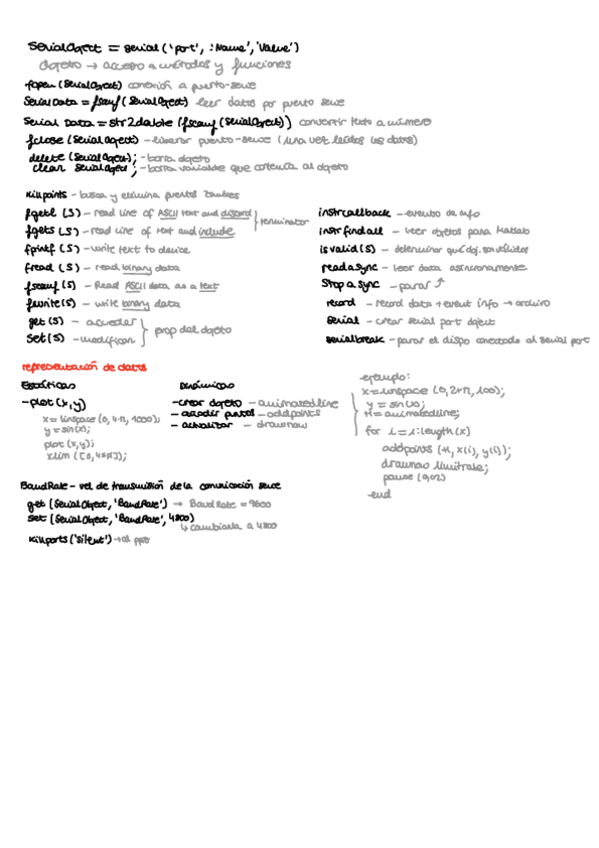 SerialObject = serial('port', :Name','Value')
objeto → acceso a métodos y funciones
fopen (SerialObject) conexión a puerto-serie
SerialData = fscanf (SerialObject) - leer datos por puerto serie
Serial Data = str2double (fscanf (SerialObject)) convertir texto a número
fclose (SerialObject) - liberar puerto-serie (una vez leídos los datos)
delete (SerialObject); - borra objeto
clear SerialObject ; - borra variable que contenía al objeto
Killports - busca y elimina puertos zombies
fgetl (S) - read line of ASCII text and discard } terminator
fgets (S) - read line of text and include
fprintf (S) - write text to device
fread (S) - read binary data
fscanf (S) - Read ASCII data as a text
fwrite (S) - write binary data
get (S) - acceder } prop del objeto
set (S) - modifican
instrcallback - evento de info
instrfindall - leer objetos para Matlab
isvalid (S) - determinar qué obj. son válidos
readasync - leer data asincronamente
Stop async - parar ⤴
record - record data + event info → archivo
serial - crear serial port object
serialbreak - parar el dispo conectado al serial port
representación de datos
Estáticas
- plot (x,y)
x = linspace (0, 4π, 1000);
y = sin(x);
plot (x,y);
xlim ([0, 4π]);
Dinámicas
- crear objeto - animatedline
- añadir puntos - addpoints
- actualizar - drawnow
- ejemplo:
x = linspace (0, 2π, 100);
y = sin(x);
H = animatedline;
for i = i:length(x)
addpoints (H, x(i), y(i));
drawnow limitrate;
pause (0,02)
- end
BaudRate - vel de transmisión de la comunicación serie
get (SerialObject, 'BaudRate') → BaudRate = 9600
set (SerialObject, 'BaudRate', 4800)
↳ cambiarla a 4800
killports ('silent') →